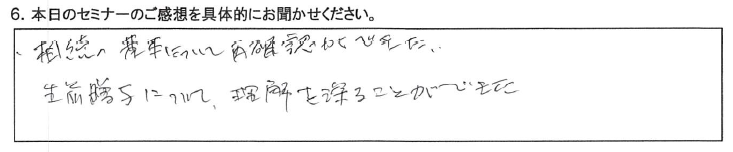 6. 本日のセミナーのご感想を具体的にお聞かせください。
・相続の基準について再確認することができた。
生前贈与について、理解を深ることができた